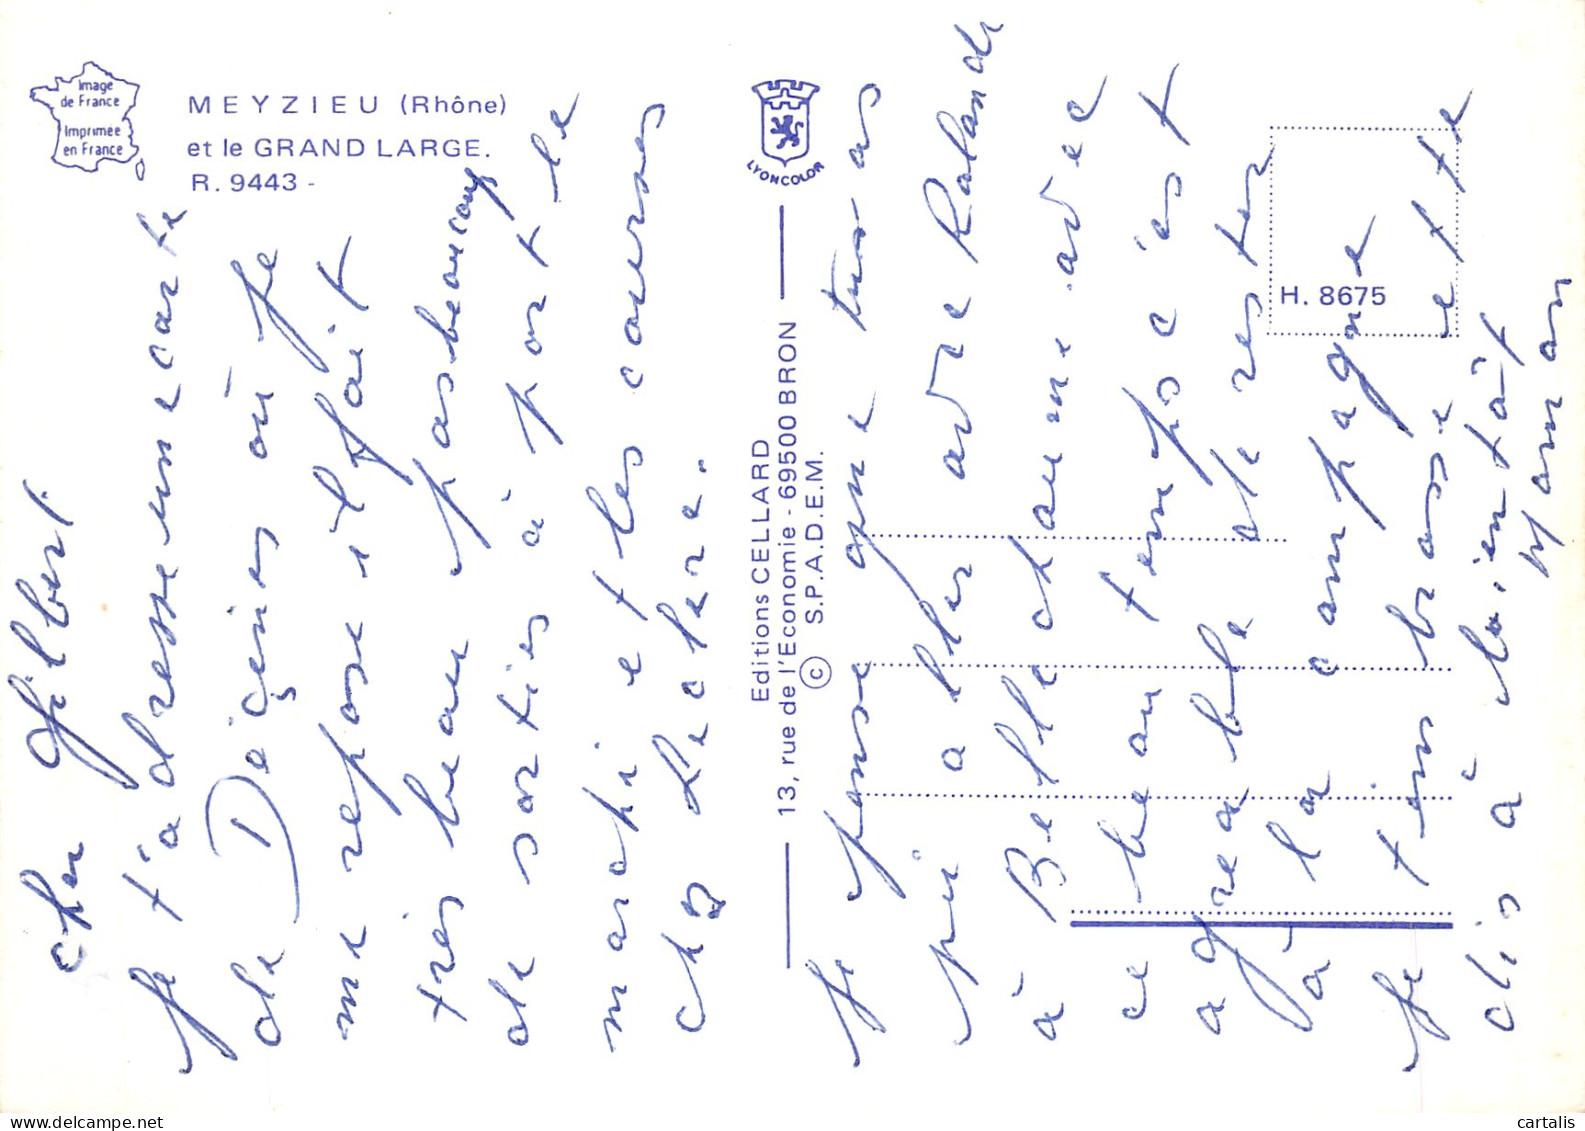 Image
de France
Imprimée
en France
MEYZIEU (Rhône)
et le GRAND LARGE.
R. 9443 -
LYONCOLOR
Editions CELLARD
13, rue de l'Economie - 69500 BRON
© S.P.A.D.E.M.
H. 8675
cher Gilbert
Je t'adresse une carte
de Décines où je
me repose il fait
très beau pas beaucoup
de sorties à part le
marché et les courses
chez Leclerc.
Je pense que tu as
pu aller
à Belle chaume avec
ce beau temps c'est
agréable de rester
à la campagne
Je t'embrasse et te
dis à bientôt
Maman
cartalis